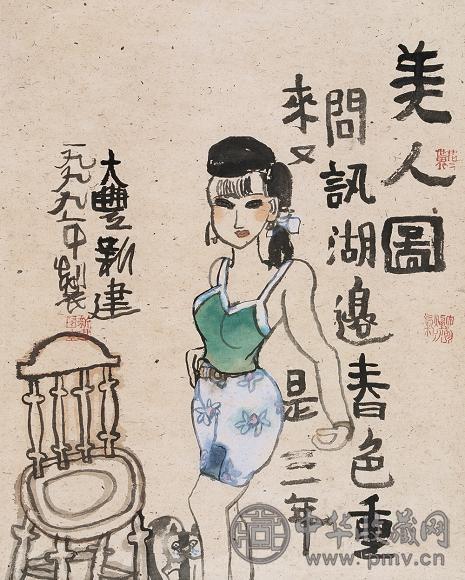 美人圖
問訊湖邊春色重
來又是三年
大豐新建
一九九九年製
中华收藏网
www.pmv.cn